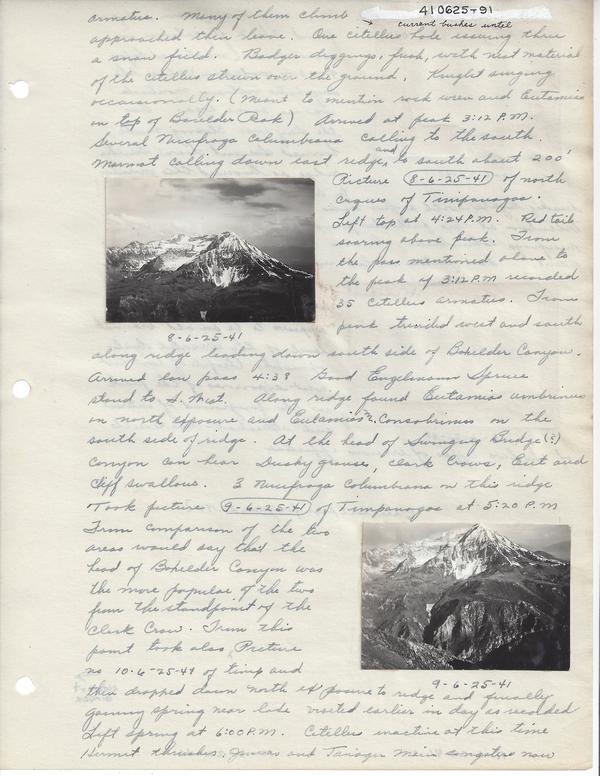 410625-91
armatus. Many of them climb → current bushes until
approached then leave. One citellus hole issuing thru
a snow field. Badger diggings, fresh, with nest material
of the citellus strewn over the ground. Kinglet singing
occasionally. (Meant to mention rock wren and Eutamias
on top of Boulder Peak) Arrived at peak 3:12 P.M.
Several Nucifraga Columbiana calling to the south.
Marmot calling down east ridge, and to south about 200'
Picture 8-6-25-41 of north
cirques of Timpanogos.
Left top at 4:24 P.M. Red tail
soaring above peak. From
the pass mentioned above to
the peak of 3:12 P.M recorded
35 Citellus armatus. From
peak trailed west and south
8-6-25-41
along ridge leading down south side of Boxelder Canyon.
Arrived low pass 4:38 Good Engelmann Spruce
stand to S. West. Along ridge found Eutamias umbrinus
on north exposure and Eutamias m. Consobrinus on the
south side of ridge. At the head of Swinging Bridge(?)
Canyon can hear Dusky grouse, Clark Crows, Eut and
Cliff swallows. 3 Nucifraga Columbiana on this ridge
Took picture 9-6-25-41 of Timpanogos at 5:20 P.M
From comparison of the two
areas would say that the
head of Boxelder Canyon was
the more popular of the two
from the standpoint of the
Clark Crow. From this
point took also Picture
no 10-6-25-41 of timp and
9-6-25-41
then dropped down north exposure to ridge and finally
gaining spring near lode visited earlier in day as recorded
Left spring at 6:00 P.M. Citellus inactive at this time
Hermit thrushes, Juncos and Tanager main songsters now